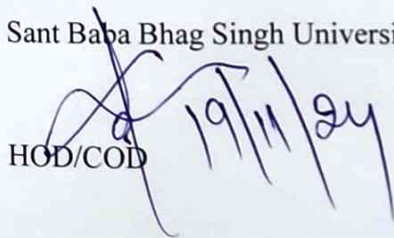 Sant Baba Bhag Singh Universi
19/11/24
HOD/COD